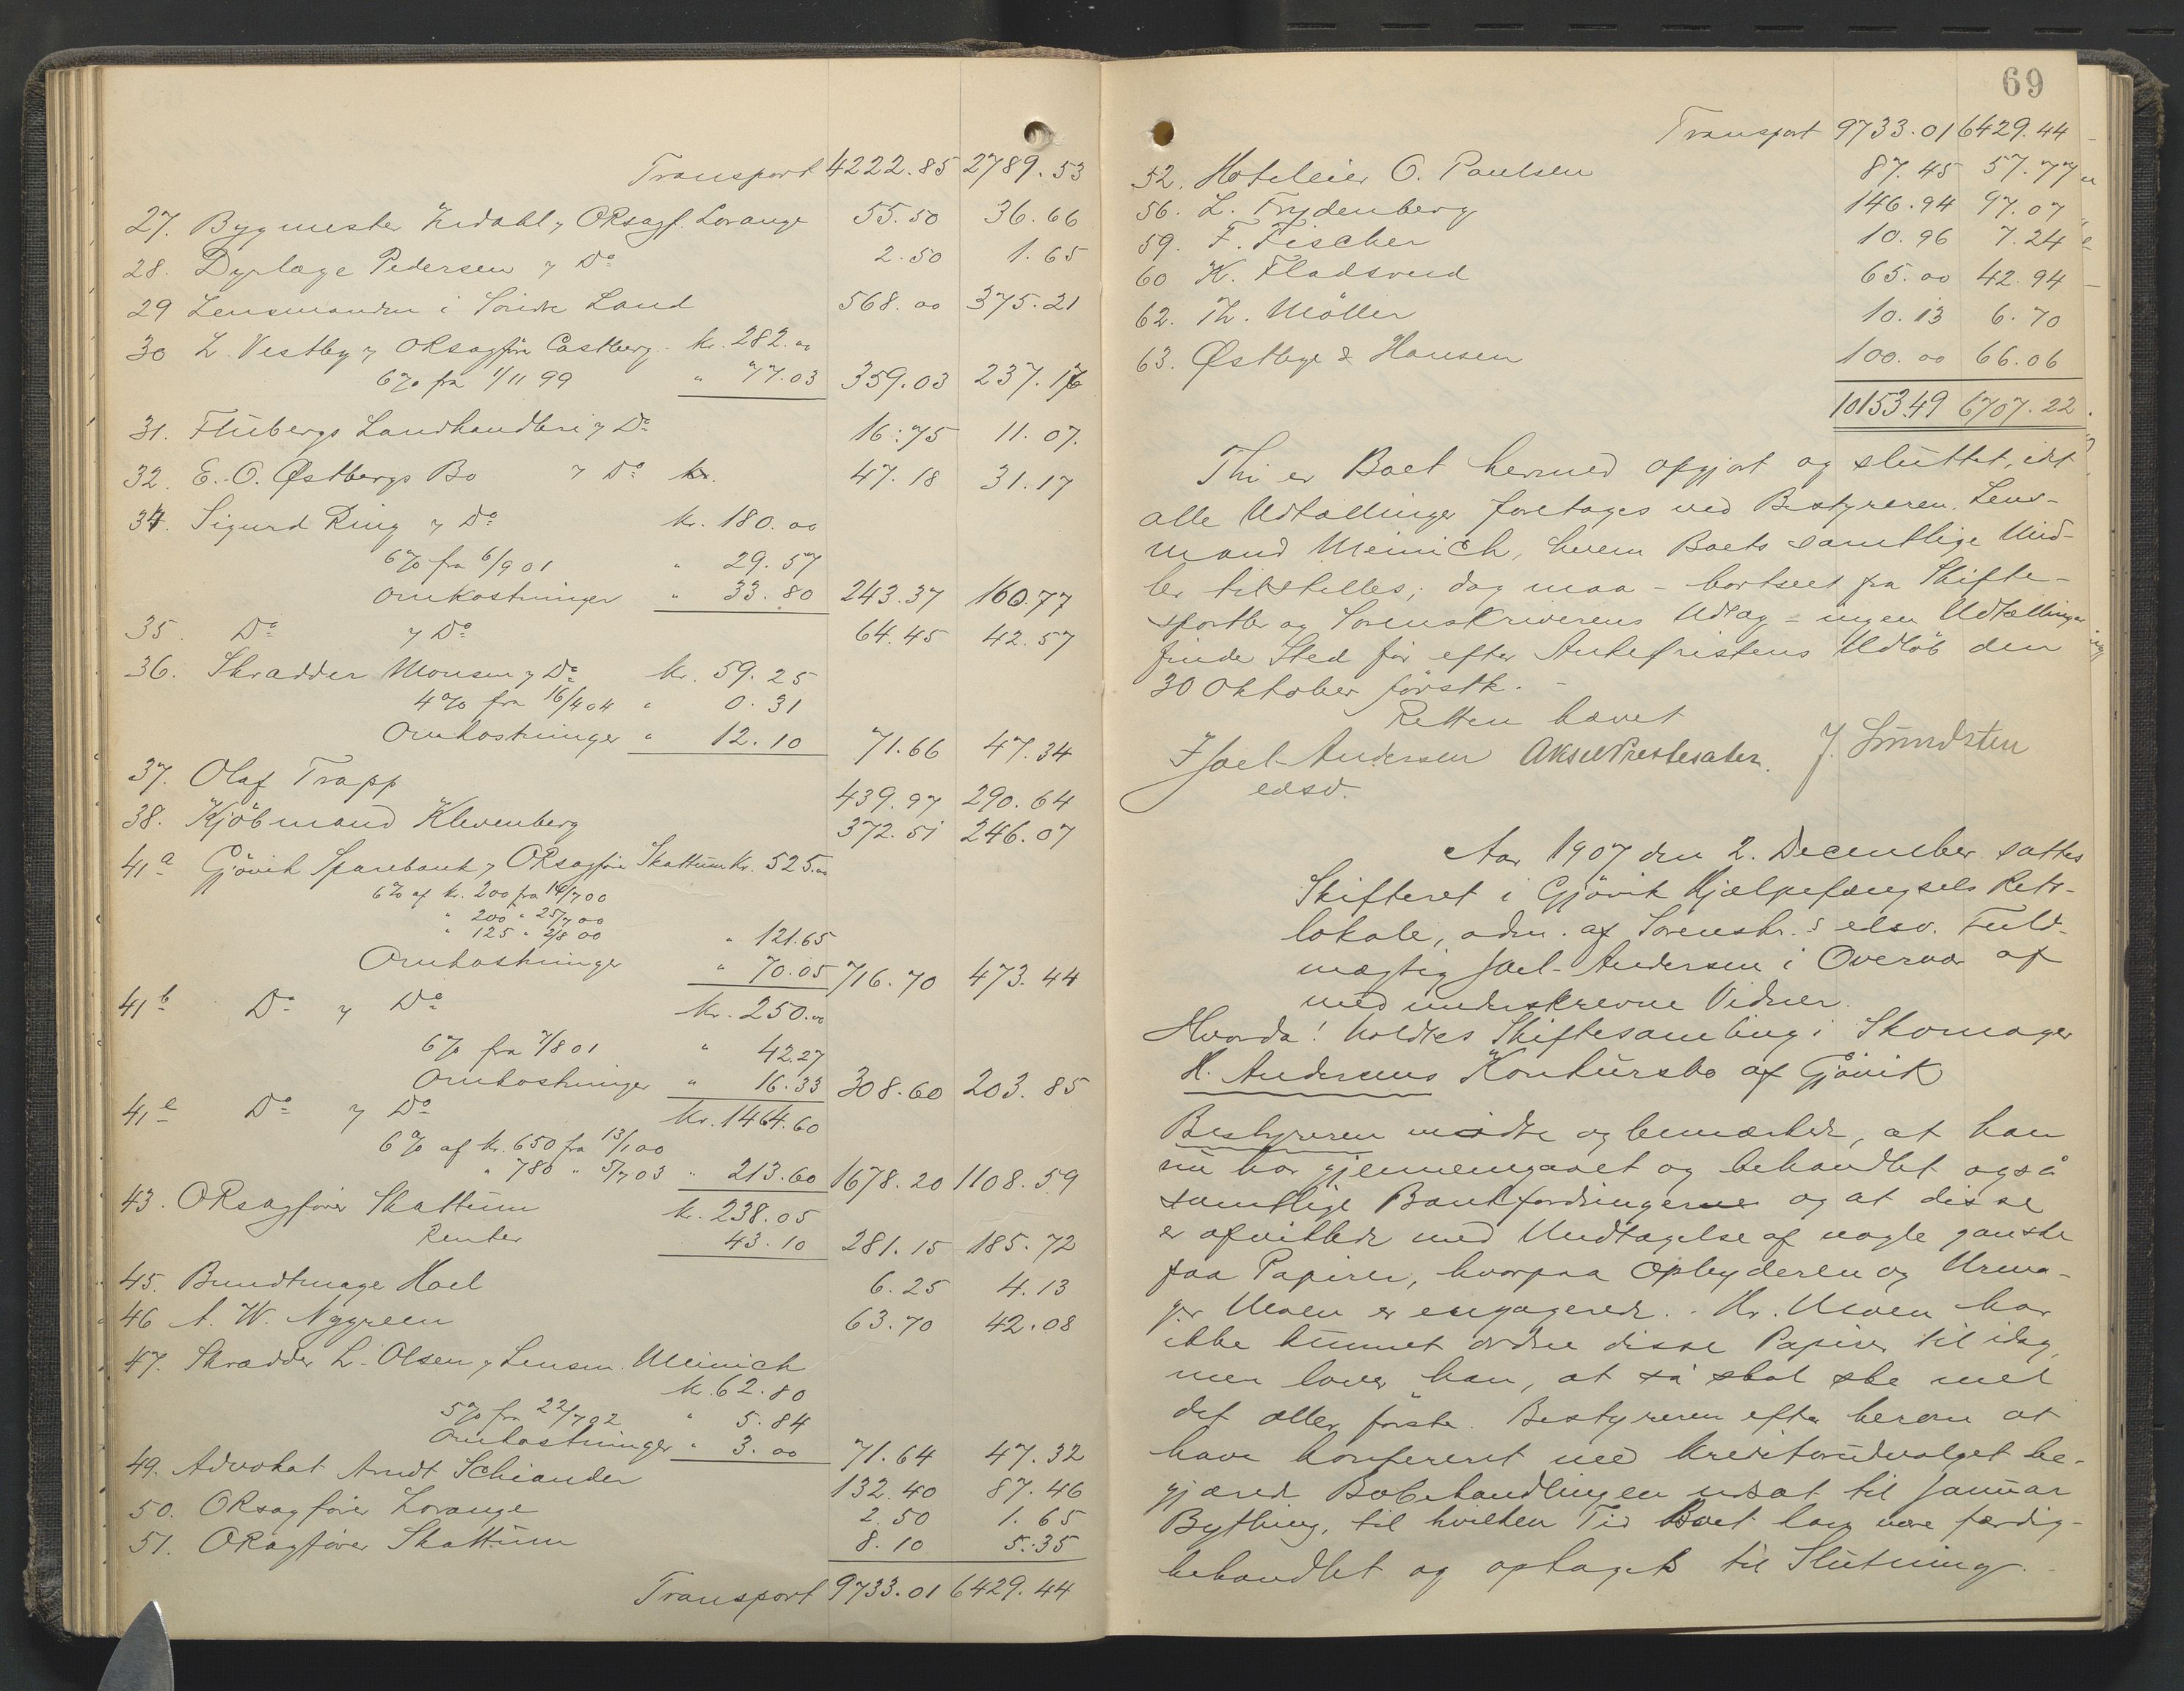 Transport 4222.85 2789.53
27. Bygmester Lidahl, ORsagf. Lorange 55.50 36.66
28. Dyrlæge Pedersen 7 Do 2.50 1.65
29 Lensmanden i Søndre Land 568.00 375.21
30 L. Vestby 7 ORsagfører Castberg kr. 282.00
6% fra 1/11 99 " 77.03 359.03 237.17
31. Flubergs Landhandleri 7 Do 16.75 11.07.
32. E. O. Østbergs Bo 7 Do kr. 47.18 31.17
34. Sigurd Ring 7 Do kr. 180.00
6% fra 6/9 01 " 29.57
Omkostninger " 33.80 243.37 160.77
35. Do 7 Do 64.45 42.57
36. Skrædder Monsen 7 Do kr. 59.25
4% fra 16/4 04 " 0.31
Omkostninger " 12.10 71.66 47.34
37. Olaf Trapp 439.97 290.64
38. Kjöbmand Klevenberg 372.51 246.07
41a Gjövik Sparebank, ORsagfører Skattum kr. 525.00
6% af kr. 200 fra 14/7 00
" 200 " 25/7 00
" 125 " 2/8 00 " 121.65
Omkostninger " 70.05 716.70 473.44
41b Do 7 Do kr. 250.00
6% fra 7/8 01 " 42.27
Omkostninger " 16.33 308.60 203.85
41c Do 7 Do kr. 1464.60
6% af kr. 650 fra 13/1 00
" 780 " 5/7 03 " 213.60 1678.20 1108.59
43. ORsagfører Skattum kr. 238.05
Renter 43.10 281.15 185.72
45. Bundtmager Hoel 6.25 4.13
46 A. W. Nygreen 63.70 42.08
47. Skrædder L. Olsen, Lensm. Meinich
kr. 62.80
5% fra 22/7 02 " 5.84
Omkostninger " 3.00 71.64 47.32
49. Advokat Arndt Schiander 132.40 87.46
50. ORsagfører Lorange 2.50 1.65
51. ORsagfører Skattum 8.10 5.35
Transport 9733.01 6429.44
69
Transport 9733.01 6429.44
52. Hoteleier O. Paulsen 87.45 57.77
56. L. Frydenberg 146.94 97.07
59. F. Fischer 10.96 7.24
60 K. Fladsrud 65.00 42.94
62. Th. Möller 10.13 6.70
63. Østbye & Hansen 100.00 66.06
10153.49 6707.22
Thi er Boet hermed opgjort og sluttet, idet
alle Udtællinger foretages ved Bestyreren, Lens-
mand Meinich, hvem Boets samtlige Mid-
ler tilstilles; dog maa - bortseet fra Skifte-
sportler og Sorenskriverens Udlæg - ingen Udtællinger
finde Sted før efter Ankefristens Udløb den
30 Oktober førstk. -
Retten hævet
Joel-Andersen Aksel Prestesæter. J. Lundsten
edsv.
Aar 1907 den 2. December sattes
Skifteret i Gjövik Hjælpefængsels Rets-
lokale, adm. af Sorenskr.s edsv. Fuld-
mægtig Joel-Andersen i Overvær af
medunderskrevne Vidner.
Hvorda! holdtes Skiftesamling i Skomager
H. Andersens Konkursbo af Gjövik
Bestyreren mødte og bemærkede, at han
nu har gjennemgaaet og behandlet også
samtlige Bankfordringerne og at disse
er afviklede med Undtagelse af nogle ganske
faa Papirer, hvorpaa Opbyderen og Urma-
ger Moen er engagerede. Hr. Moen har
ikke kunnet ordne disse Papirer til idag,
men lover han, at så skal ske med
det aller første. Bestyreren efter herom at
have konfereret med kreditorudvalget be-
gjæred Bobehandlingen udsat til Januar
Bything, til hvilken Tid Boet kan være færdig-
behandlet og optaget til Slutning.